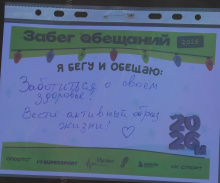 Забег обещаний
Я БЕГУ И ОБЕЩАЮ:
Заботиться о своем
здоровье!
Вести активный образ
жизни!
2026